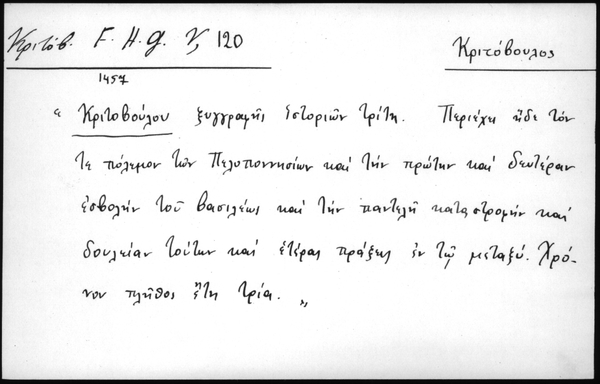 Κριτόβ. F. H. G. V, 120
Κριτόβουλος
1457
"Κριτοβούλου ξυγγραφῆς ἱστοριῶν τρίτη. Περιέχει ἥδε τόν
τε πόλεμον τῶν Πελοποννησίων καί τήν πρώτην καί δευτέραν
ἐσβολήν τοῦ βασιλέως καί τήν παντελῆ καταστροφήν καί
δουλείαν τούτων καί ἑτέρας πράξεις ἐν τῷ μεταξύ. Χρό-
νου πλῆθος ἔτη τρία."